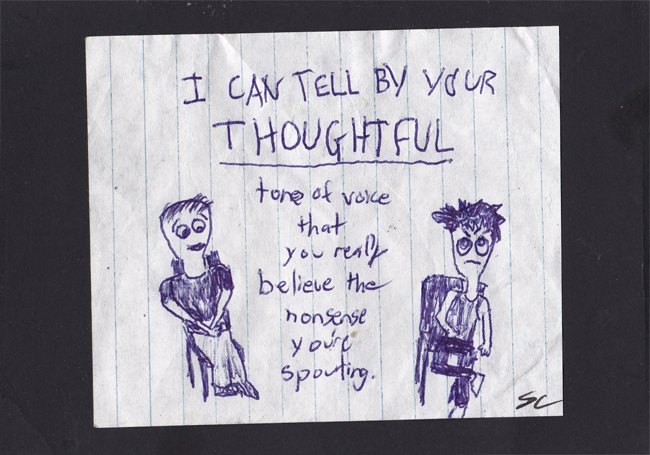 I CAN TELL BY YOUR
THOUGHTFUL
tone of voice
that
you really
believe the
nonsense
you're
spouting.
SC